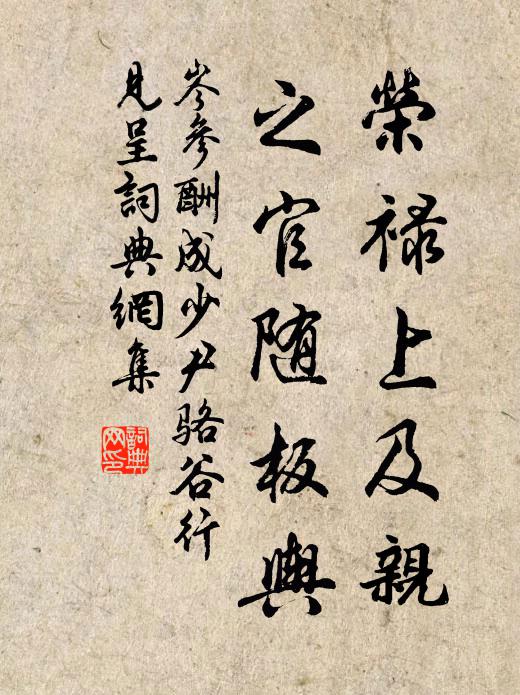 榮祿上及親
之官隨板輿
岑參酬成少尹駱谷行
見呈詞典網集
詞典
网印